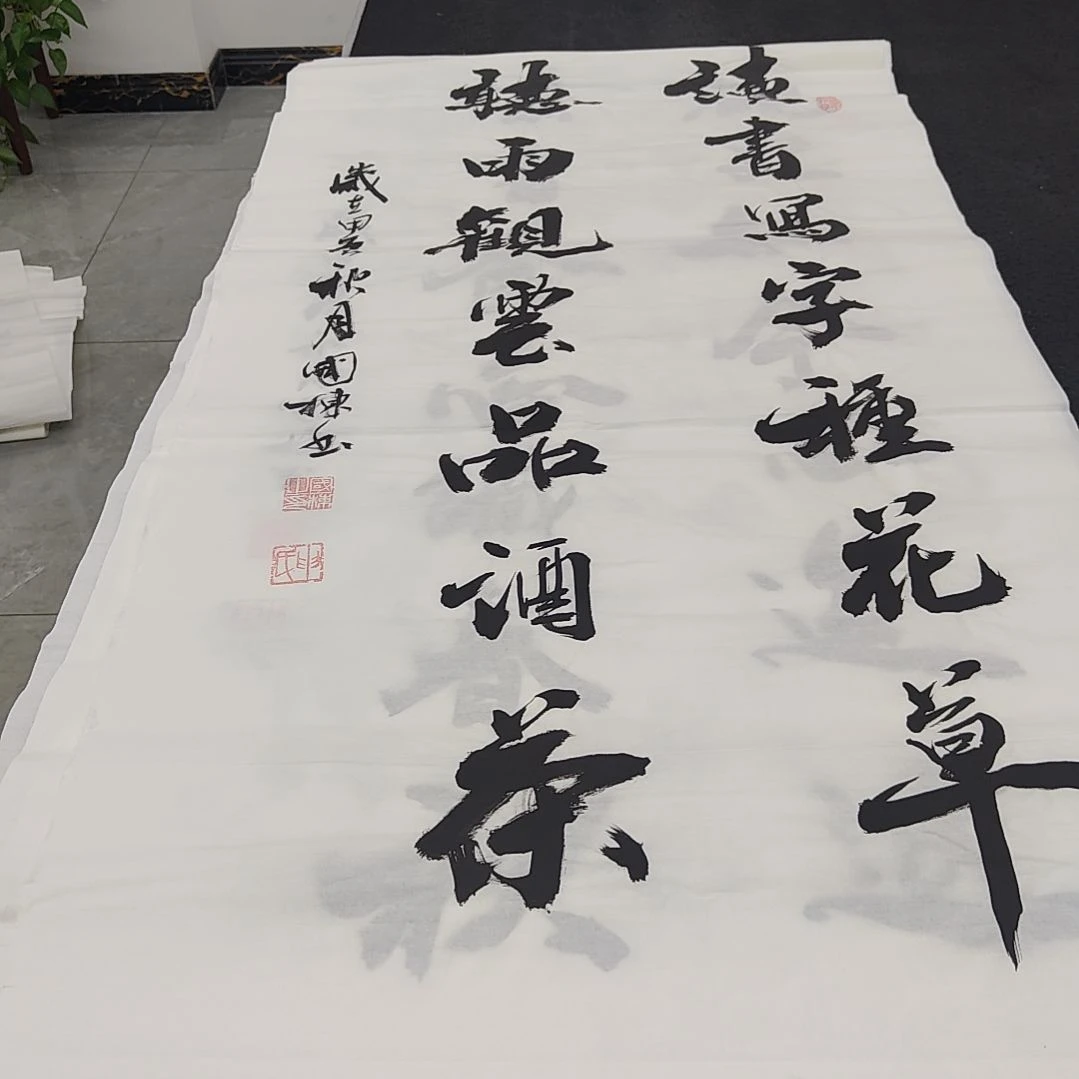 讀書寫字種花草
聽雨觀雲品酒茶
歲在壬寅秋月國棟書